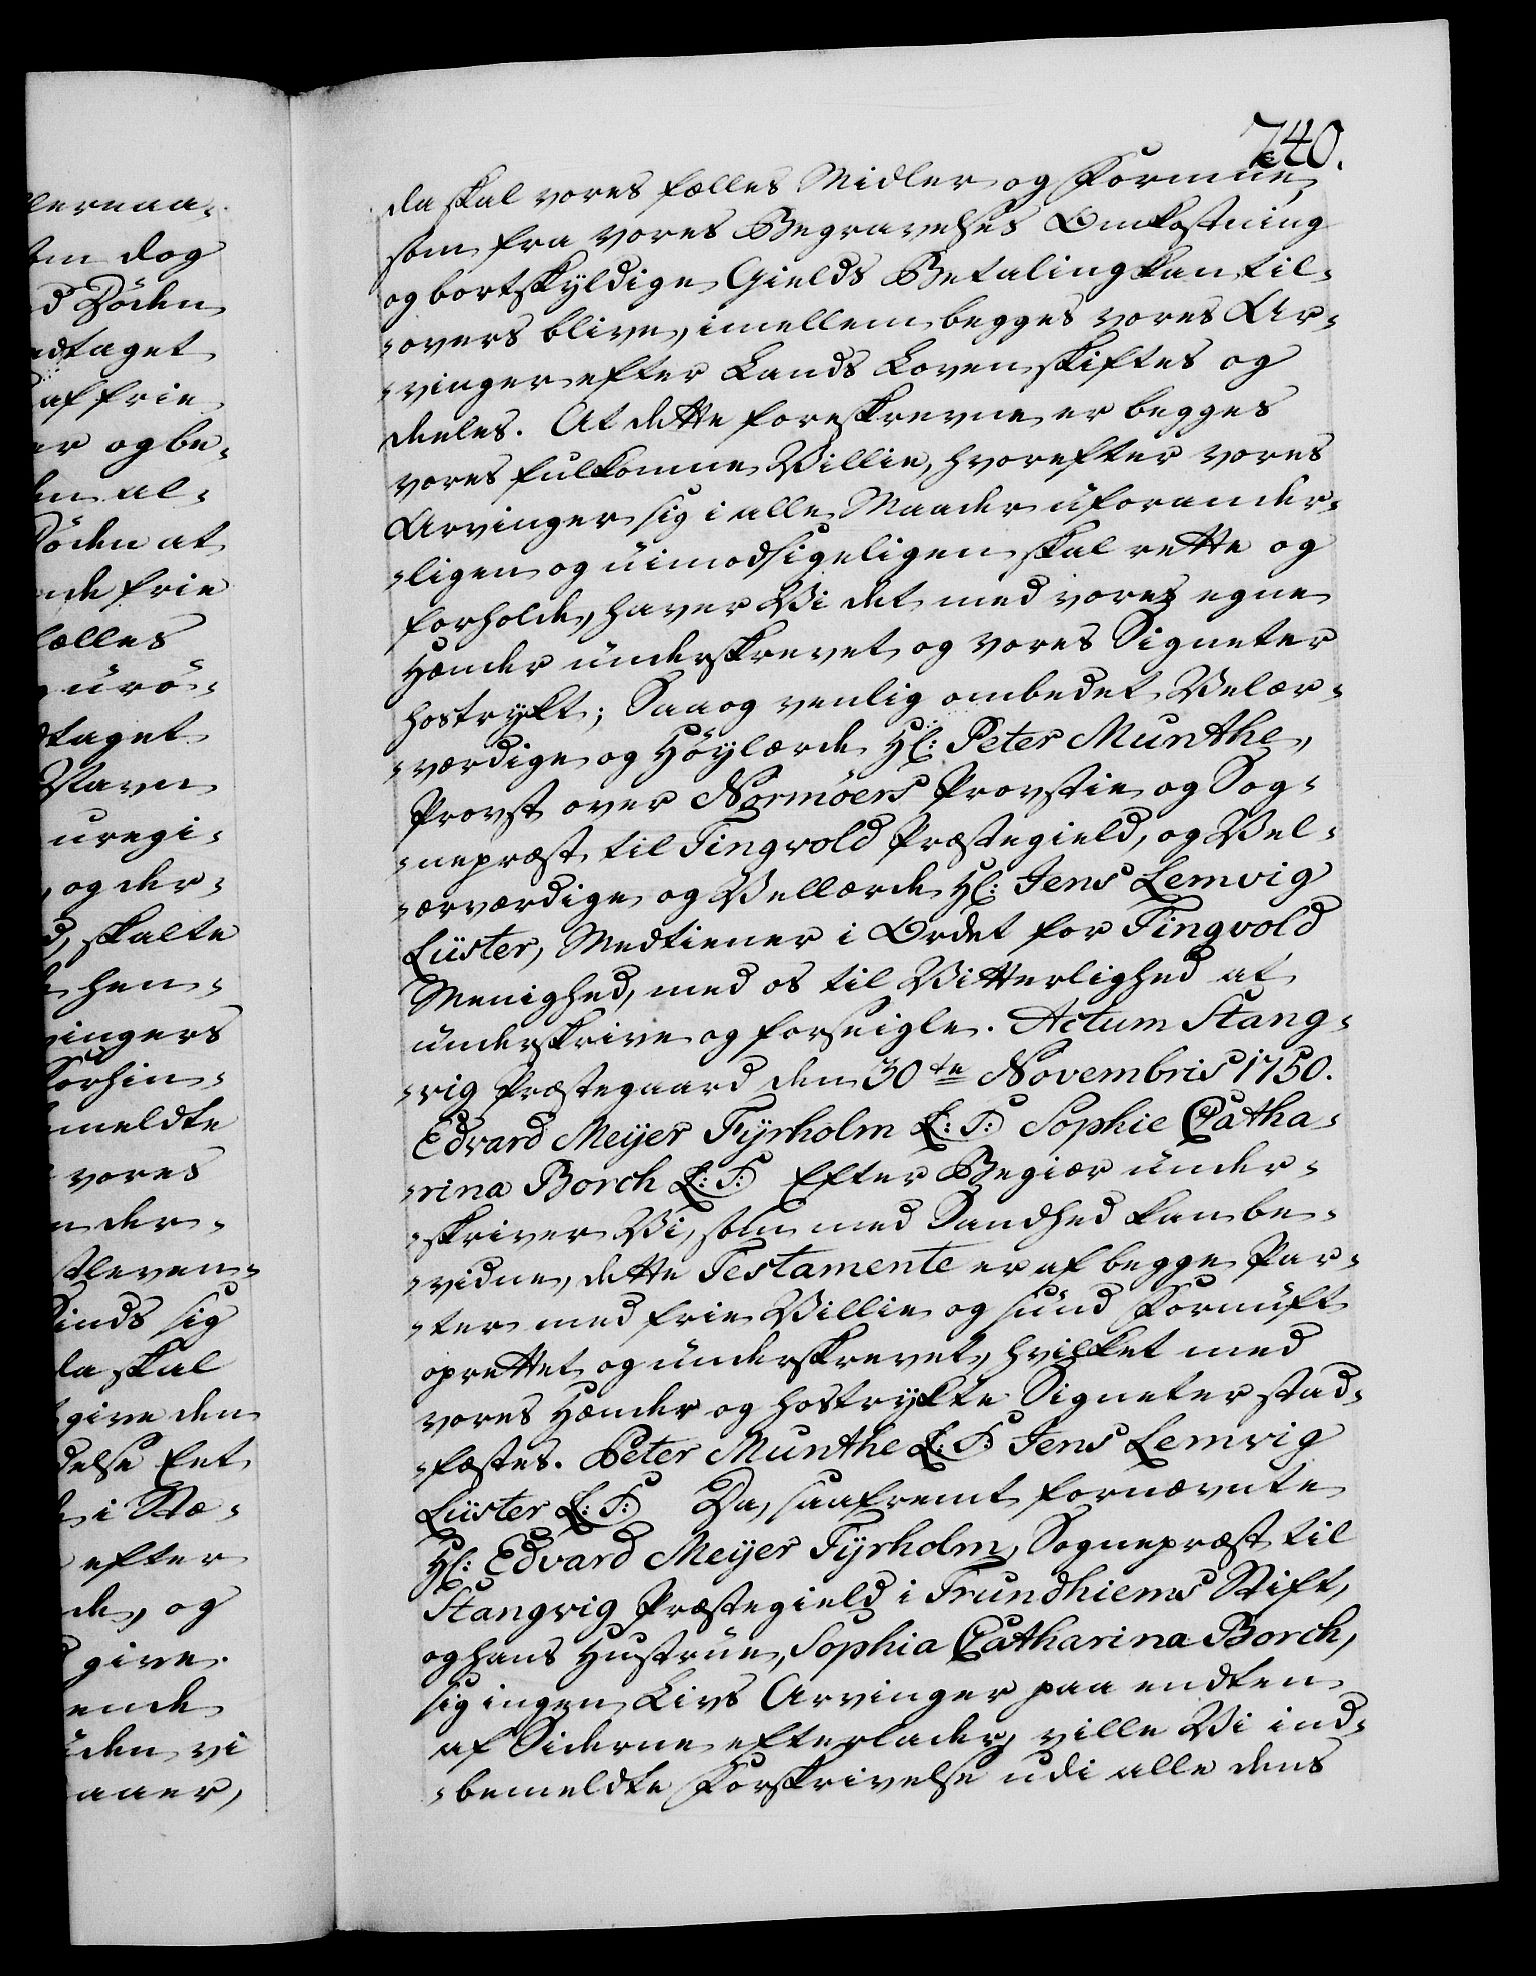 740.
da skal vores fælles Midler og Formue,
som fra vores Begravelses Omkostning
og bortskyldige Gields Betaling kan til-
-overs blive, imellem begges vores Ar-
-vinger efter Lands Loven skiftes og
deeles. At dette foreskrevne er begges
vores fulkomne Villie, hvorefter vores
Arvinger sig i alle Maader uforander-
-ligen og üimodsigeligen skal rette og
forholde, haver Vi det med vores egne
Hænder ünderskrevet og vores Signeter
hostrykt; Saa og venlig ombedet Velær-
-værdige og Höylærde Hl: Peter Munthe,
Provst over Normöers Provstie og Sog-
-nepræst til Tingvold Præstegield, og Vel-
-ærværdige og Vellærde Hl: Jens Lemvig
Lüster, Medtiener i Ordet for Tingvold
Menighed, med os til Vitterlighed at
ünderskrive og forseigle. Actum Stang-
-vig Præstegaard den 30te Novembris 1750.
Edvard Meyer Fyrholm L: S: Sophie Catha-
-rina Borch L: S: Efter Begiær ünder-
-skriver Vi, som med Sandhed kan be-
-vidne, dette Testamente er af begge Par-
-ter med frie Villie og sünd Fornüft
oprettet og ünderskrevet, hvilket med
vores Hænder og hostrykte Signeter stad-
-fæstes. Peter Munthe L: S: Jens Lemvig
Lüster L: S: Da, saafremt fornævnte
Hl: Edvard Meyer Fyrholm, Sognepræst til
Stangvig Præstegield i Trundhiems Stift,
og hans Hustrüe, Sophia Catharina Borch,
sig ingen Livs Arvinger paa endten
af Siderne efterlader, ville Vi ind-
-bemeldte Forskrivelse udi alle dens